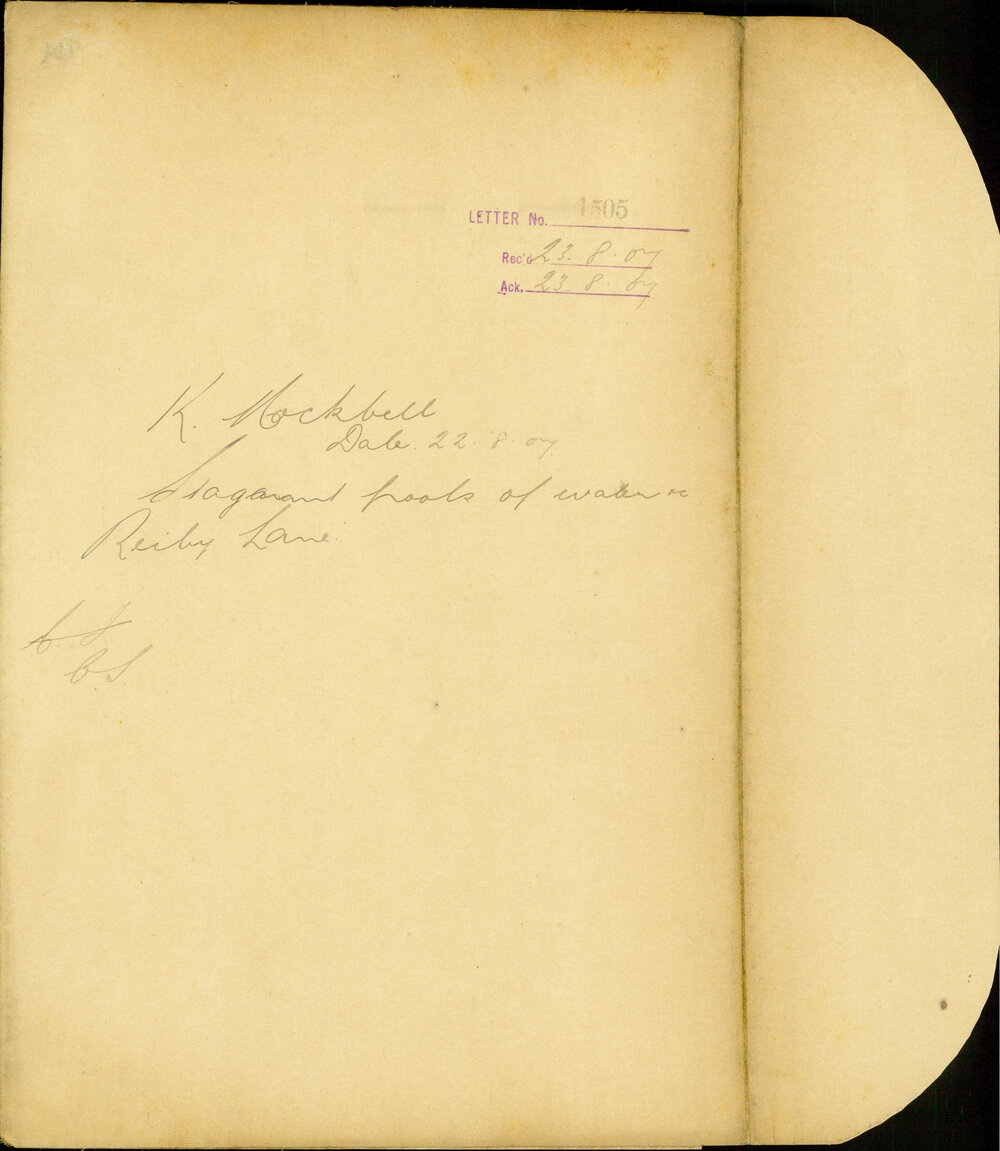 LETTER No. 1505
Rec'd 23. 8. 07
Ack. 23. 8. 07
K. Mockbell
Date. 22. 8. 07
Stagnant pools of water &c
Reiby Lane.
C.S.